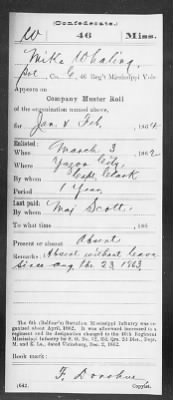 (Confederate.)
W 46 Miss.
Mike Whaling
Pvt., Co. E, 46 Reg't Mississippi Vols.
Appears on
Company Muster Roll
of the organization named above,
for Jan & Feb, 1864
Enlisted:
When March 3, 1862
Where Yazoo City
By whom Capt. Clark
Period 1 Year
Last paid:
By whom Maj Scott
To what time , 186
Present or absent Absent
Remarks: Absent without leave
since aug the 23 1863
The 6th (Balfour's) Battalion Mississippi Infantry was
organized about April, 1862. It was afterwards increased to
a regiment and its designation changed to the 46th Regiment
Mississippi Infantry by S. O. No.
M. and E. La., dated Vicksburg, Dec. 2, 1862.
Book mark:
F. Donohue
(642) Copyist.